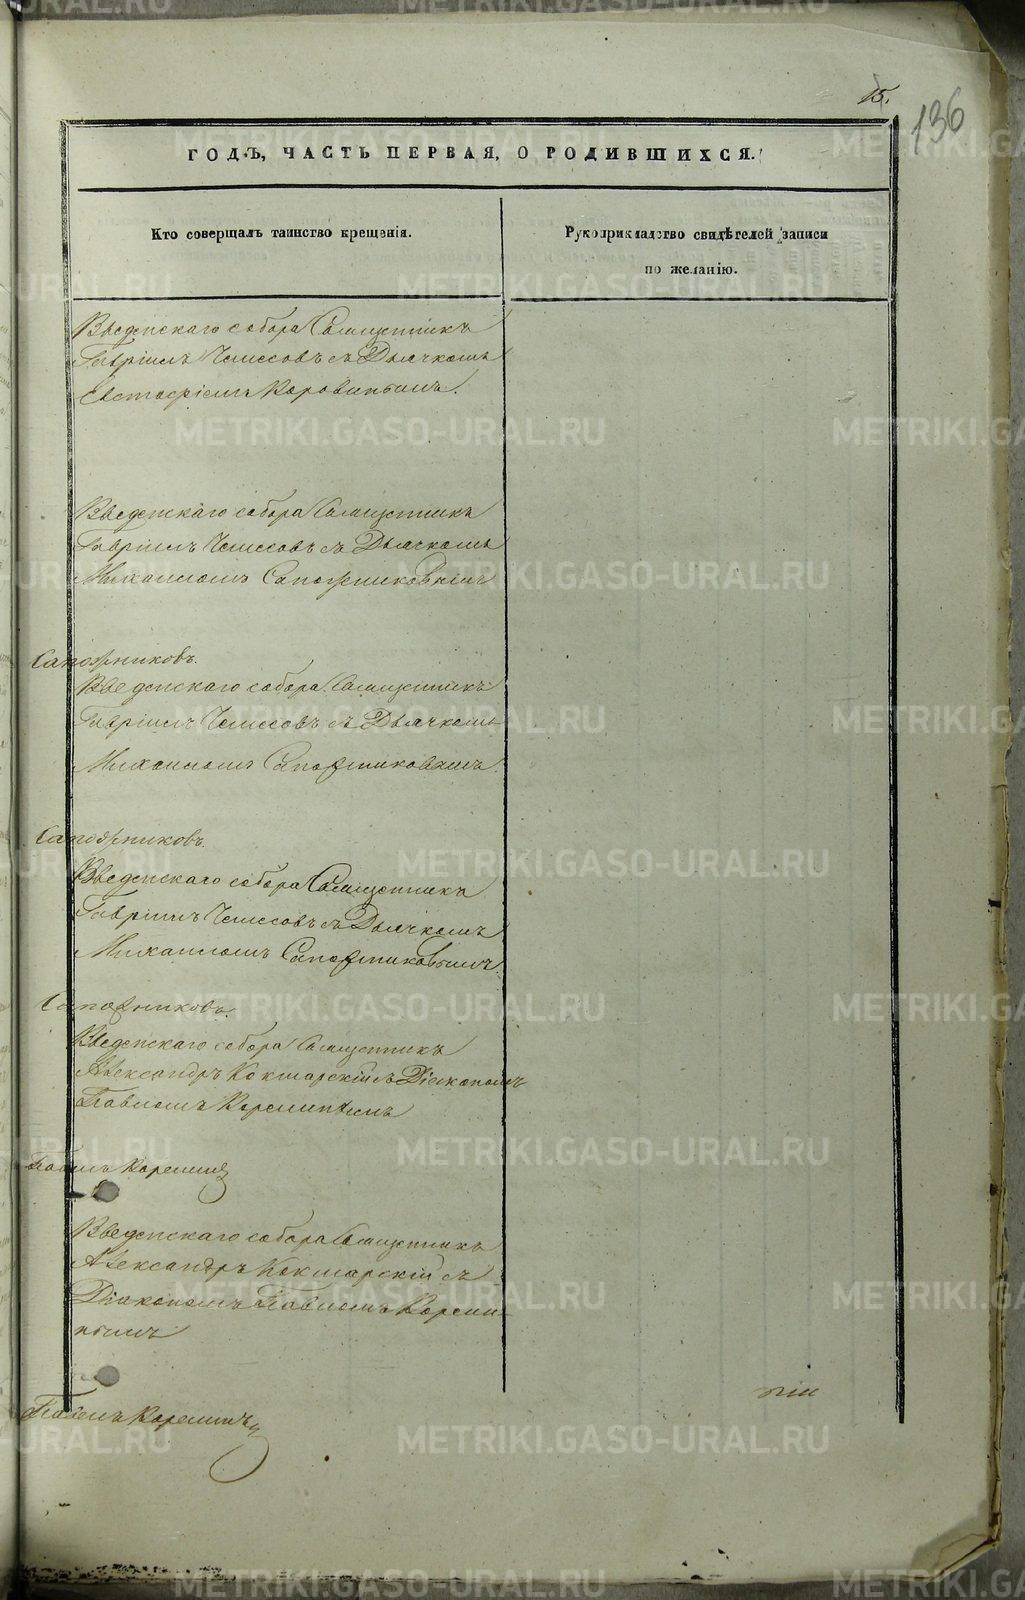 15.
136
ГОДЪ, ЧАСТЬ ПЕРВАЯ, О РОДИВШИХСЯ.
Кто совершалъ таинство крещенія.
Рукоприкладство свидѣтелей записи
по желанію.
Введенскаго собора Священникъ
Гавріилъ Чемесовъ съ Дьячкомъ
Евстафіемъ Коровинымъ.
Введенскаго собора Священникъ
Гавріилъ Чемесовъ съ Дьячкомъ
Михаиломъ Сапожниковымъ
Сапожниковъ.
Введенскаго собора Священникъ
Гавріилъ Чемесовъ съ Дьячкомъ
Михаиломъ Сапожниковымъ
Сапожниковъ.
Введенскаго собора Священникъ
Гавріилъ Чемесовъ съ Дьячкомъ
Михаиломъ Сапожниковымъ
Сапожниковъ.
Введенскаго собора Священникъ
Александръ Кокшарскій съ Діакономъ
Павломъ Корелинымъ
Павелъ Корелинъ
Введенскаго собора Священникъ
Александръ Кокшарскій съ
Діакономъ Павломъ Корели
нымъ
Павелъ Корелинъ
METRIKI.GASO-URAL.RU